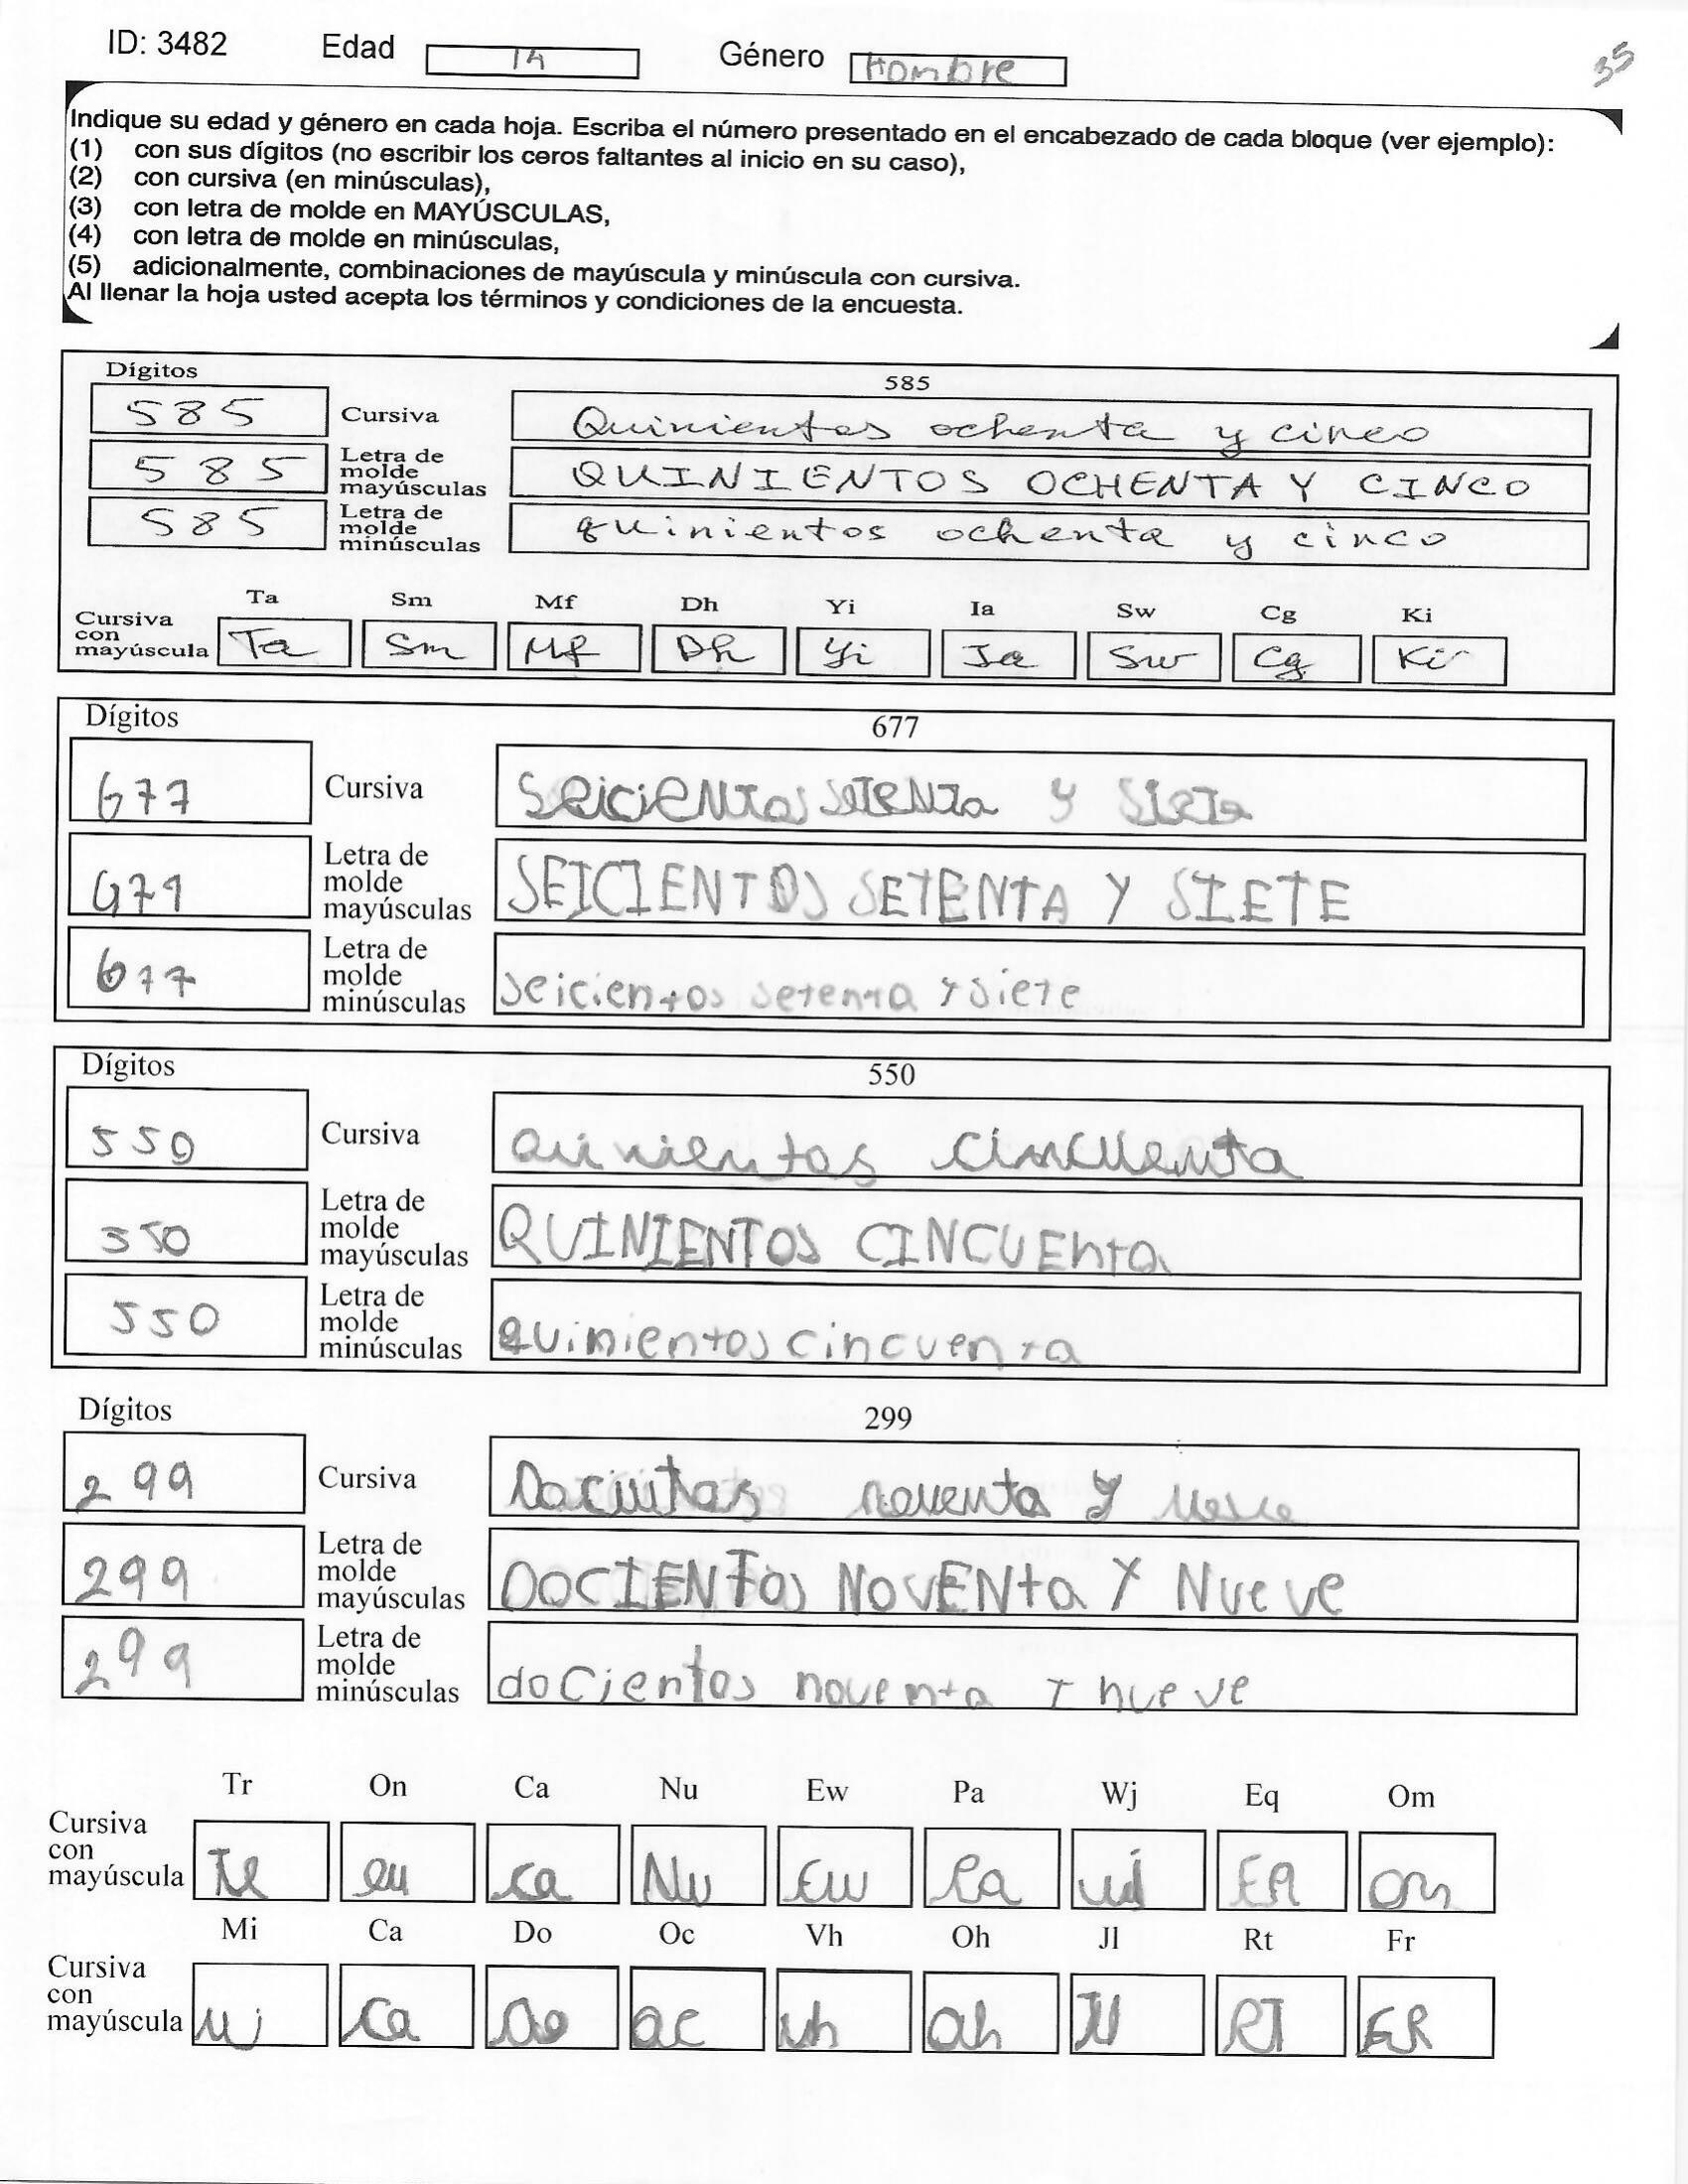 ID: 3482 Edad 14 Género Hombre 35
Indique su edad y género en cada hoja. Escriba el número presentado en el encabezado de cada bloque (ver ejemplo):
(1) con sus dígitos (no escribir los ceros faltantes al inicio en su caso),
(2) con cursiva (en minúsculas),
(3) con letra de molde en MAYÚSCULAS,
(4) con letra de molde en minúsculas,
(5) adicionalmente, combinaciones de mayúscula y minúscula con cursiva.
Al llenar la hoja usted acepta los términos y condiciones de la encuesta.
Dígitos 585
585 Cursiva Quinientos ochenta y cinco
585 Letra de molde mayúsculas QUINIENTOS OCHENTA Y CINCO
585 Letra de molde minúsculas quinientos ochenta y cinco
Ta Sm Mf Dh Yi Ia Sw Cg Ki
Cursiva con mayúscula Ta Sm Mf Dh Yi Ia Sw Cg Ki
Dígitos 677
677 Cursiva SeiciENTos SeTENTa y SieTe
677 Letra de molde mayúsculas SEICIENTOS SETENTA Y SIETE
677 Letra de molde minúsculas seicientos setenta y siete
Dígitos 550
550 Cursiva quinientos cincuenta
550 Letra de molde mayúsculas QUINIENTOS CINCUEnta
550 Letra de molde minúsculas quinientos cincuenta
Dígitos 299
299 Cursiva noventa y
299 Letra de molde mayúsculas DOCIENTOS NOVENta Y NUeve
299 Letra de molde minúsculas doCientos noventa Y nueve
Tr On Ca Nu Ew Pa Wj Eq Om
Cursiva con mayúscula ca Nu Ew Pa wj Om
Mi Ca Do Oc Vh Oh Jl Rt Fr
Cursiva con mayúscula Mi Ca Do oc vh Oh Jl RT FR